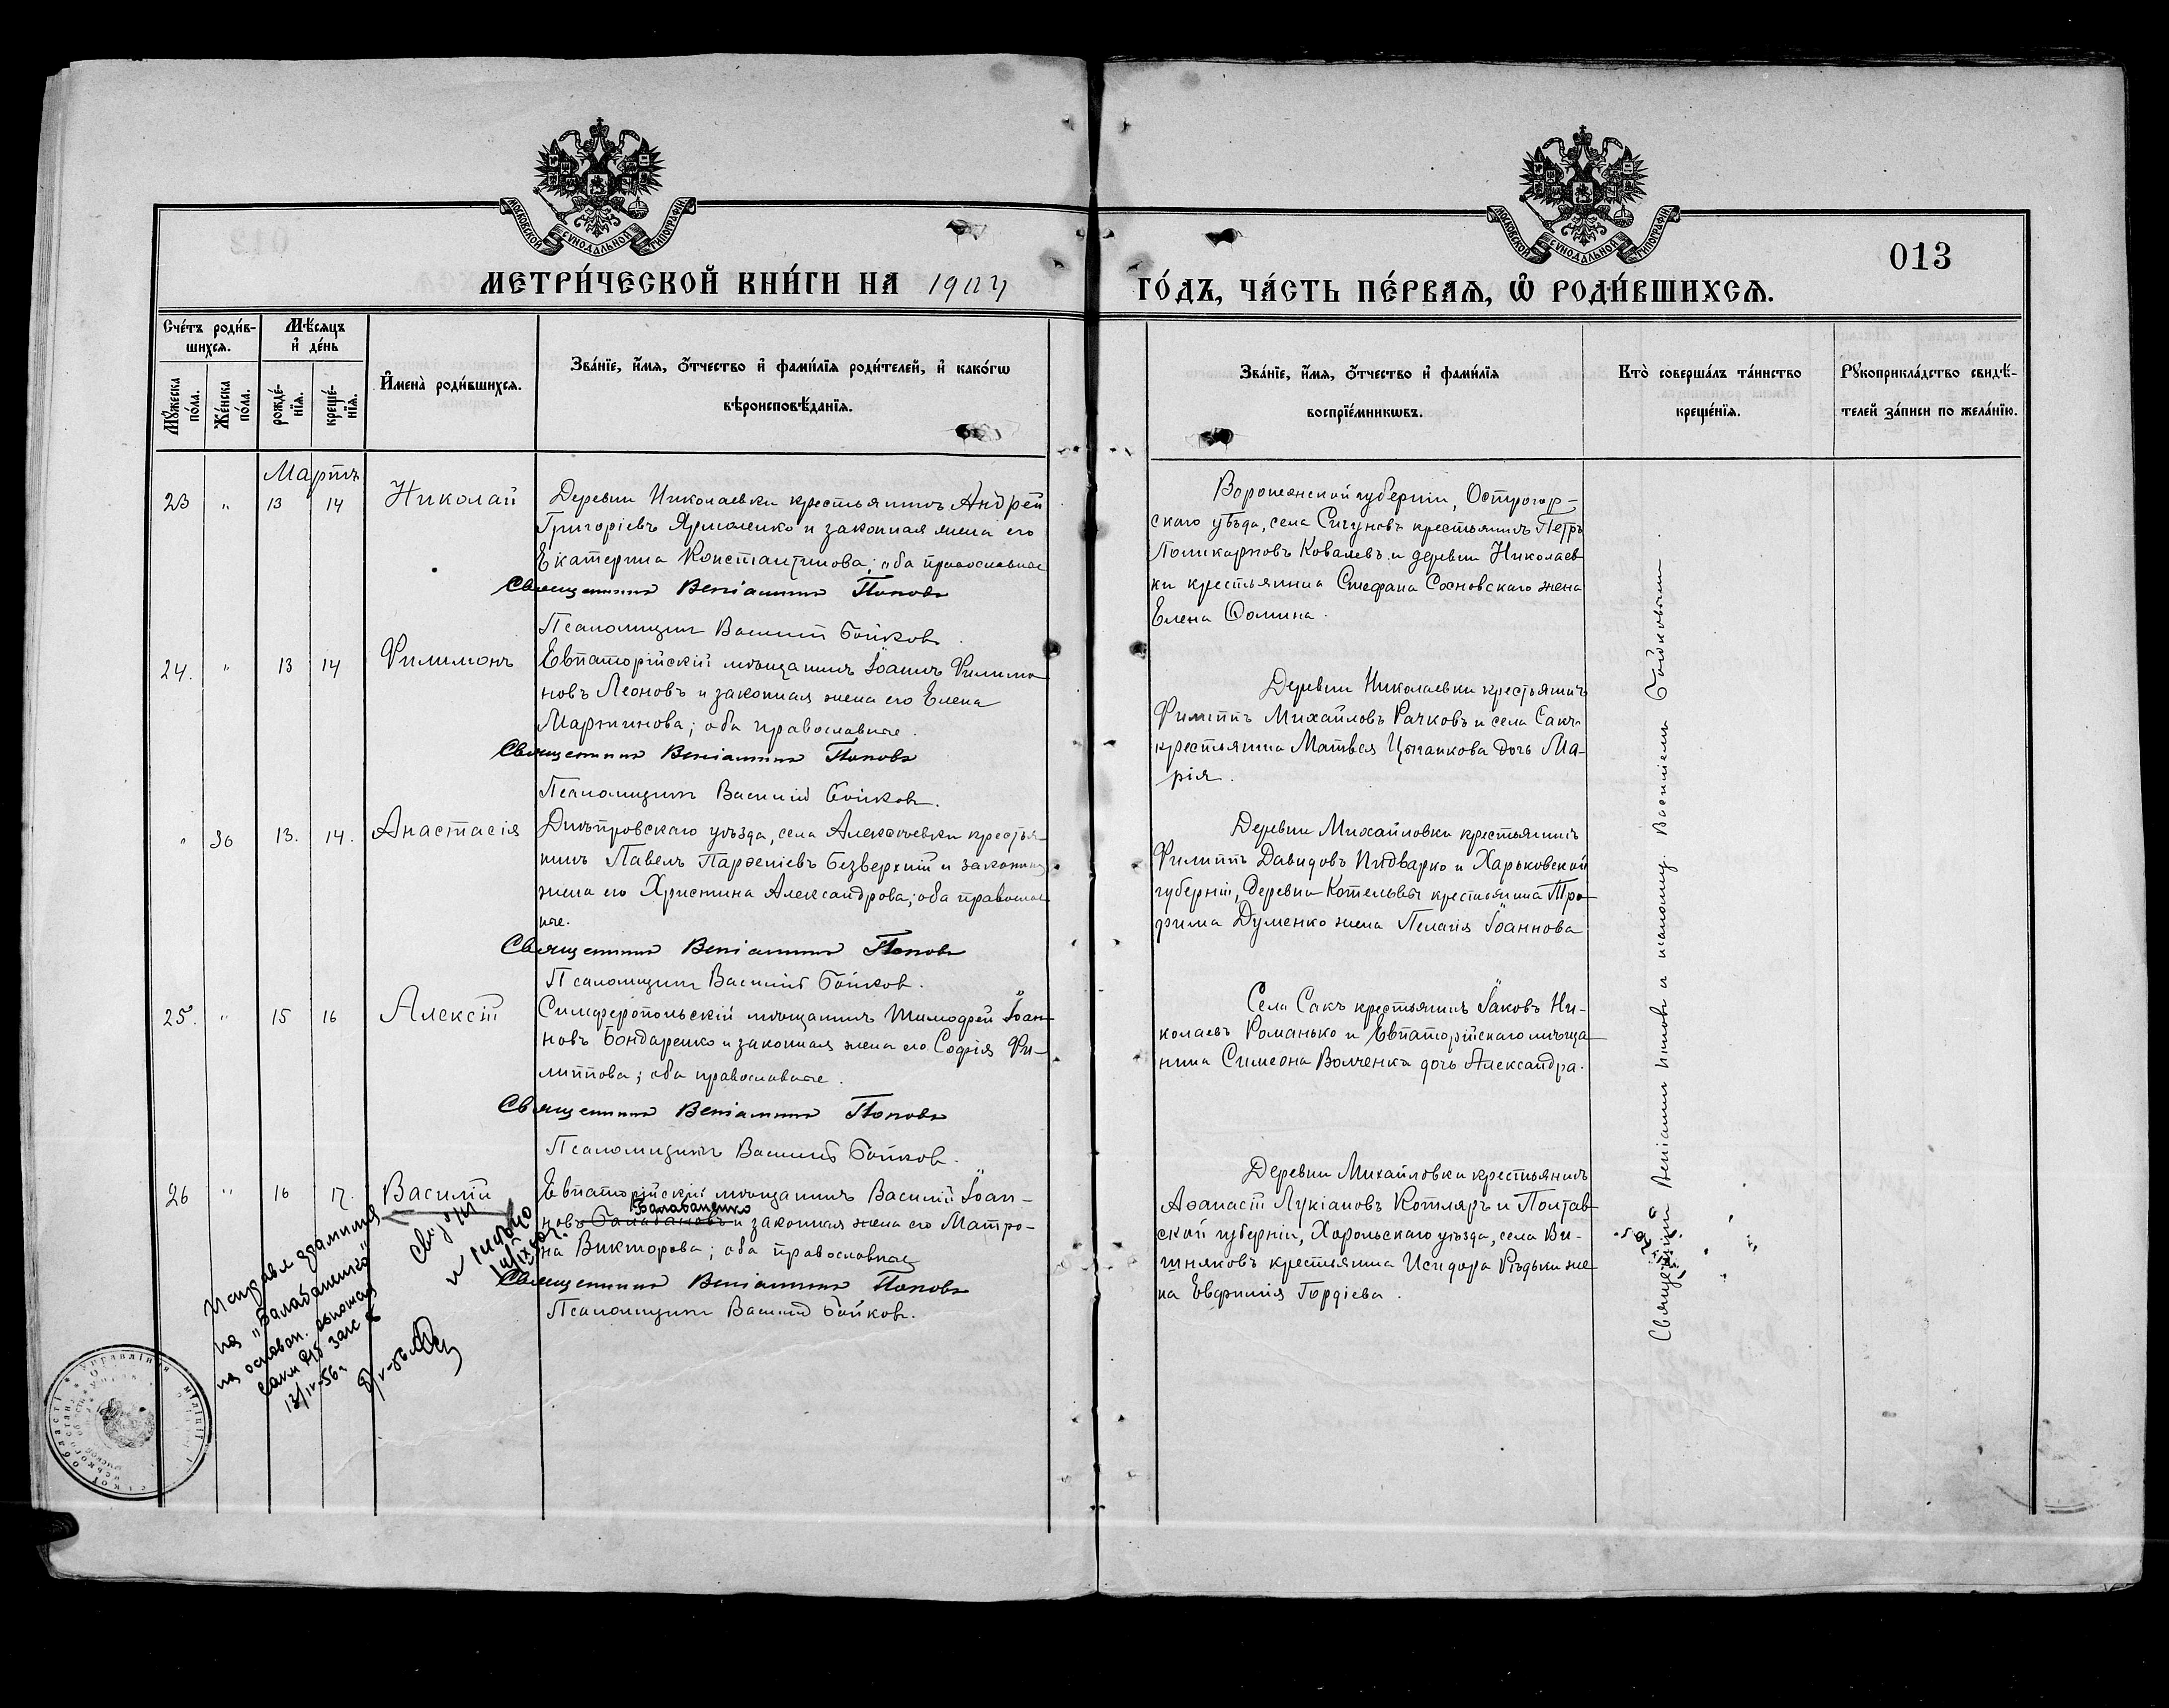 МОСКОВСКОЙ СѴНОДАЛЬНОЙ ТИПОГРАФІИ
МОСКОВСКОЙ СѴНОДАЛЬНОЙ ТИПОГРАФІИ
013
МЕТРИ́ЧЕСКОЙ КНИ́ГИ НА
ГО́ДЪ, ЧА́СТЬ ПЕ́РВАѦ, Ѡ РОДИ́ВШИХСѦ.
Счéтъ роди́в-
шихсѧ.
Мѣ́сѧцъ
и҆ дéнь
Мꙋ́жеска
по́ла.
Жéнска
по́ла.
рождé-
нїѧ.
крещé-
нїѧ.
И҆мена̀ роди́вшихсѧ.
Зва́нїе, и҆́мѧ, ѻ҆́тчество и҆ фами́лїѧ роди́телей, и҆ како́гѡ
вѣроисповѣ́данїѧ.
Зва́нїе, и҆́мѧ, ѻ҆́тчество и҆ фами́лїѧ
воспрїе́мникѡвъ.
Кто̀ соверша́лъ та́инство
крещéнїѧ.
Рꙋкоприкла́дство свидѣ́-
телей за́писи по жела́нїю.
Мартъ
23 " 13 14 Николай
Деревни Николаевки крестьянинъ Андрей
Григоріевъ Ярмоленко и законная жена его
Екатерина Константинова; оба православные
Священникъ Веніаминъ Поповъ
Псаломщикъ Василій Бойковъ
Воронежской губерніи, Острогож-
скаго уѣзда, села Сигуновъ крестьянинъ Петръ
Поликарповъ Ковалевъ и деревни Николаев-
ки крестьянина Стефана Сосновскаго жена
Елена Фомина.
24. " 13 14 Филимонъ
Евпаторійскій мѣщанинъ Іоаннъ Филимо-
новъ Леоновъ и законная жена его Елена
Мартинова; оба православные.
Священникъ Веніаминъ Поповъ
Псаломщикъ Василій Бойковъ.
Деревни Николаевки крестьянинъ
Филиппъ Михайловъ Рачковъ и села Сакъ
крестьянина Матвея Цыганкова дочь Ма-
рія.
" 30 13. 14. Анастасія
Днѣпровскаго уѣзда, села Алексѣевки крестья-
нинъ Павелъ Парѳеніевъ Безверхій и законная
жена его Христина Александрова; оба православ-
ные.
Священникъ Веніаминъ Поповъ
Псаломщикъ Василій Бойков.
Деревни Михайловки крестьянинъ
Филиппъ Давидовъ Пидварко и Харьковской
губерніи, Деревни Котельвы крестьянина Тро-
фима Думенко жена Пелагія Іоаннова
25. " 15 16 Алексѣй
Симферопольскій мѣщанинъ Тимофей Іоан-
новъ Бондаренко и законная жена его Софія Фи-
липпова; оба православные.
Священникъ Веніаминъ Поповъ
Псаломщикъ Василій Бойков.
Села Сакъ крестьянинъ Іаковъ Ни-
колаевъ Романько и Евпаторійскаго мѣща-
нина Симеона Волченка дочь Александра.
26 " 16 17. Василій
Евпаторійскій мѣщанинъ Василій Іоан-
Балабаненко
новъ Балабановъ и законная жена его Матро-
на Викторова; оба православные
Священникъ Веніаминъ Поповъ
Псаломщикъ Василій Бойков.
Деревни Михайловки крестьянинъ
Аѳанасій Лукіановъ Котляръ и Полтав-
ской губерніи, Хорольскаго уѣзда, села Ви-
шняковъ крестьянина Исидора Рѣдьки же-
на Евфимія Гордіева.
Священникъ Веніаминъ Поповъ и псаломщ. Василіемъ Бойковымъ
на „Балабаненко"
на основан.
13/IV-56г